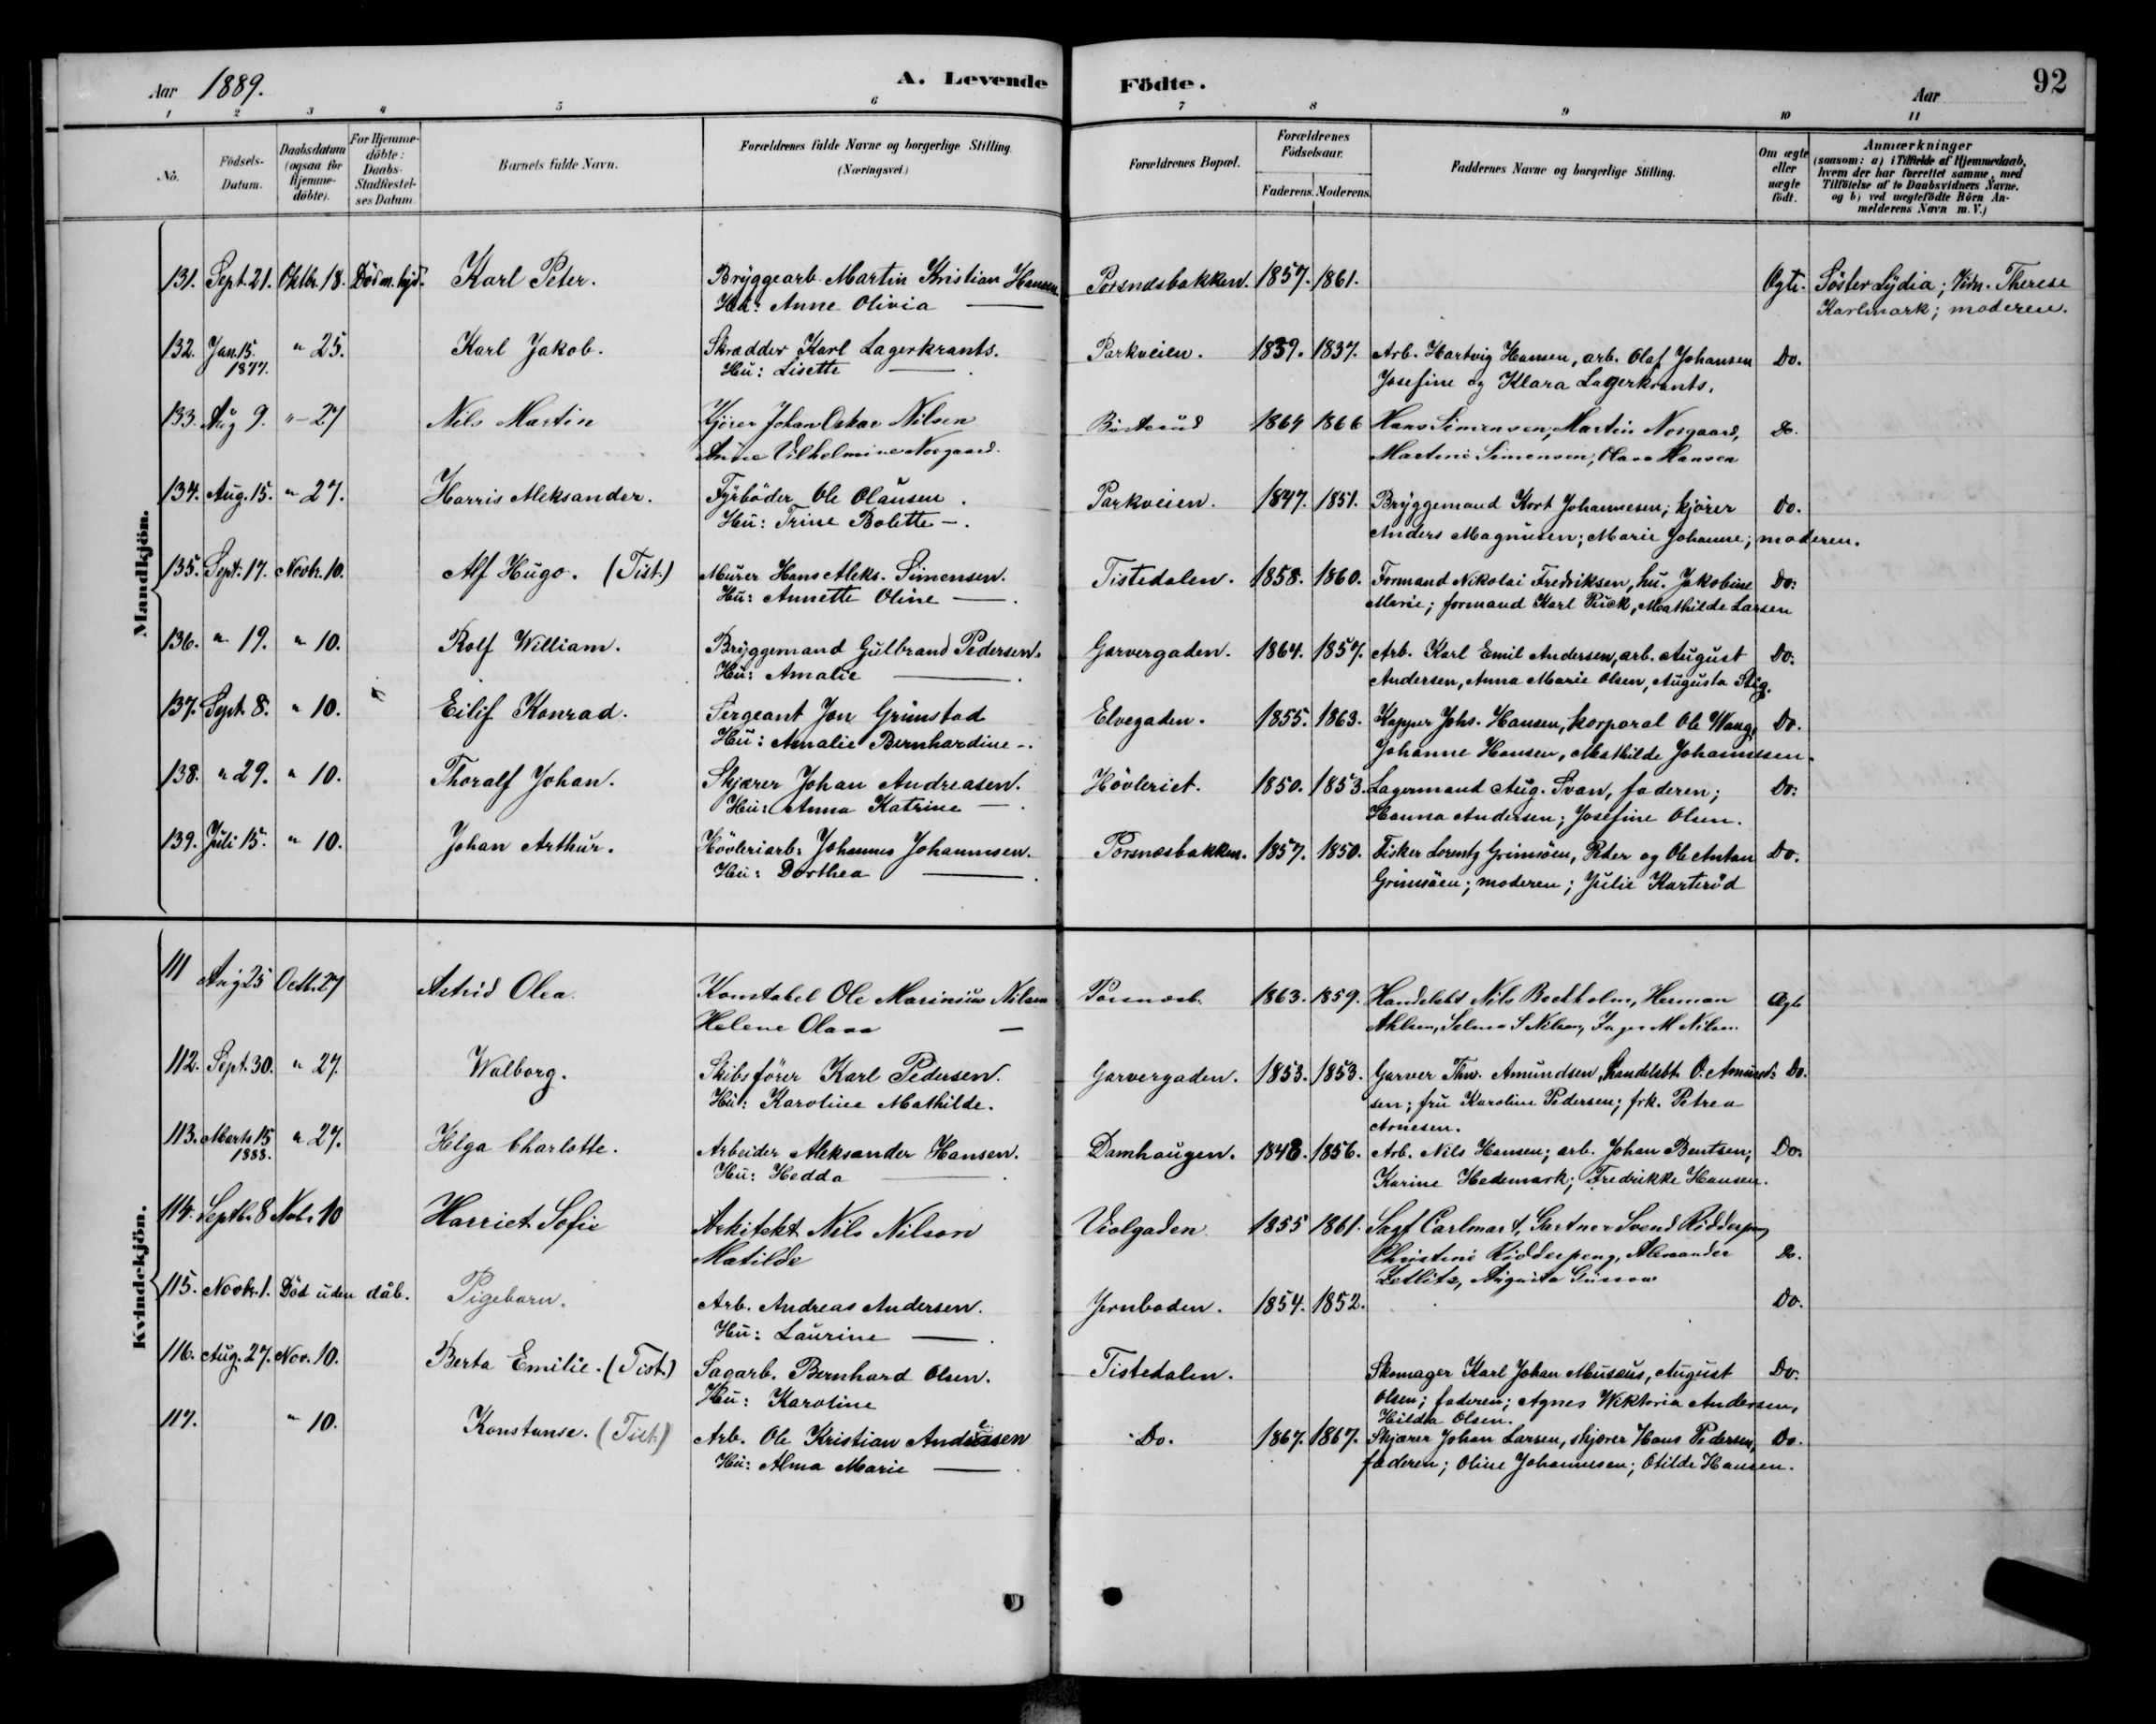 Aar 1889.
A. Levende Födte.
Aar
92
1 2 3 4 5 6 7 8 9 10 11
Nö.
Födsels-Datum.
Daabsdatum (ogsaa for Hjemme-döbte).
For Hjemme-döbte: Daabs-Stadfæstel-ses Datum.
Barnets fulde Navn.
Forældrenes fulde Navne og borgerlige Stilling. (Næringsvei.)
Forældrenes Bopæl.
Forældrenes Födselsaar.
Faderens. Moderens.
Faddernes Navne og borgerlige Stilling.
Om ægte eller uægte födt.
Anmærkninger (saasom: a) i Tilfælde af Hjemmedaab, hvem der har forrettet samme, med Tilföielse af to Daabsvidners Navne, og b) ved uægtefödte Börn An-melderens Navn m. V.)
Mandkjön.
131. Sept. 21. Oktbr. 18. Död m. hjd. Karl Peter. Bryggearb. Martin Kristian Hansen Porsnæsbakken. 1857. 1861. Ægte. Söster Lydia; Vidn. Therese
Hu: Anne Olivia — Karlmark; moderen.
132. Jan. 15. " 25. Karl Jakob. Skrædder Karl Lagerkrants. Parkveien. 1839. 1837. Arb. Hartvig Hansen, arb. Olaf Johansen Do.
1877. Hu: Lisette — . Josefine og Klara Lagerkrants.
133. Aug 9. " - 27 Nils Martin Kjörer Johan Oskar Nilsen 1864 1866 Hans Simensen, Martin Norgaard, Do.
Anne Vilhelmine Norgaard. Martine Simensen, Olava Hansen
134. Aug. 15. " 27. Harris Aleksander. Fyrböder Ole Olausen. Parkveien. 1847. 1851. Bryggemand Kort Johannesen; kjörer Do.
Hu: Trine Bolette —. Anders Magnusen; Marie Johanne; moderen.
135. Sept. 17. Novbr. 10. Alf Hugo. (Tist.) Murer Hans Aleks. Simensen. Tistedalen. 1858. 1860. Formand Nikolai Fredriksen, hu. Jakobine Do:
Hu: Annette Oline — . Marie; formand Karl Ruck, Mathilde Larsen
136. " 19. " 10. Rolf William. Bryggemand Gulbrand Pedersen. Garvergaden. 1864. 1857. Arb. Karl Emil Andersen, arb. August Do:
Hu: Amalie — . Andersen, Anna Marie Olsen, Augusta Stig.
137. Sept. 8. " 10. Eilif Konrad. Sergeant Jon Grimstad Elvegaden. 1855. 1863. Kapper Johs. Hansen, korporal Ole Wang, Do.
Hu: Amalie Bernhardine —. Johanne Hansen, Mathilde Johannessen.
138. " 29. " 10. Thoralf Johan. Skjærer Johan Andreasen. Hövleriet. 1850. 1853. Lagermand Aug. Svan, faderen; Do:
Hu: Anna Katrine — . Hanna Andersen; Josefine Olsen.
139. Juli 15. " 10. Johan Arthur. Hövleriarb: Johannes Johannesen. Porsnæsbakken. 1857. 1850. Fisker Lorentz Grimsöen, Peter og Ole Anton Do.
Hu: Dorthea — . Grimsöen; moderen; Julie Karteröd
Kvindekjön.
111 Aug 25 Octb. 27 Astrid Olea. Konstabel Ole Marinius Nilsen Porsnæsb. 1863. 1859. Handelsbt Nils Bockholm, Herman Ægte
Helene Olava — Ahlsen, Selma S Nilsen, Inger M Nilsen
112. Sept. 30. " 27. Walborg. Skibsförer Karl Pedersen. Garvergaden. 1853. 1853. Garver Thv. Amundsen, handelsbt. O. Amund- Do.
Hu: Karoline Mathilde. sen; fru Karoline Pedersen; frk. Petrea
Arnesen.
113. Marts 15 " 27. Helga Charlotte. Arbeider Aleksander Hansen. Damhaugen. 1848. 1856. Arb. Nils Hansen; arb. Johan Bentsen; Do.
1888. Hu: Hedda — . Karine Hedemark; Fredrikke Hansen.
114. Septbr 8 Nov. 10 Harriet Sofie Arkitekt Nils Nilson Violgaden 1855 1861. Sagf Carlmart, Gartner Svend Ridderpung
Matilde Christine Ridderpeng, Alexander Do.
Zetlitz, Augusta
115. Novbr. 1. Död uden dåb. Pigebarn. Arb. Andreas Andersen. Jernboden. 1854. 1852. Do.
Hu: Laurine — .
116. Aug. 27. Nov. 10. Berta Emilie. (Tist.) Sagarb. Bernhard Olsen. Tistedalen. Skomager Karl Johan Musæus, August Do.
Hu: Karoline Olsen; faderen; Agnes Wiktoria Andersen,
Hilda Olsen.
117. " 10. Konstanse. (Tist.) Arb. Ole Kristian Andreasen Do. 1867. 1867. Skjærer Johan Larsen, skjærer Hans Pedersen, Do.
Hu: Alma Marie — . faderen; Oline Johannesen; Otilde Hansen.